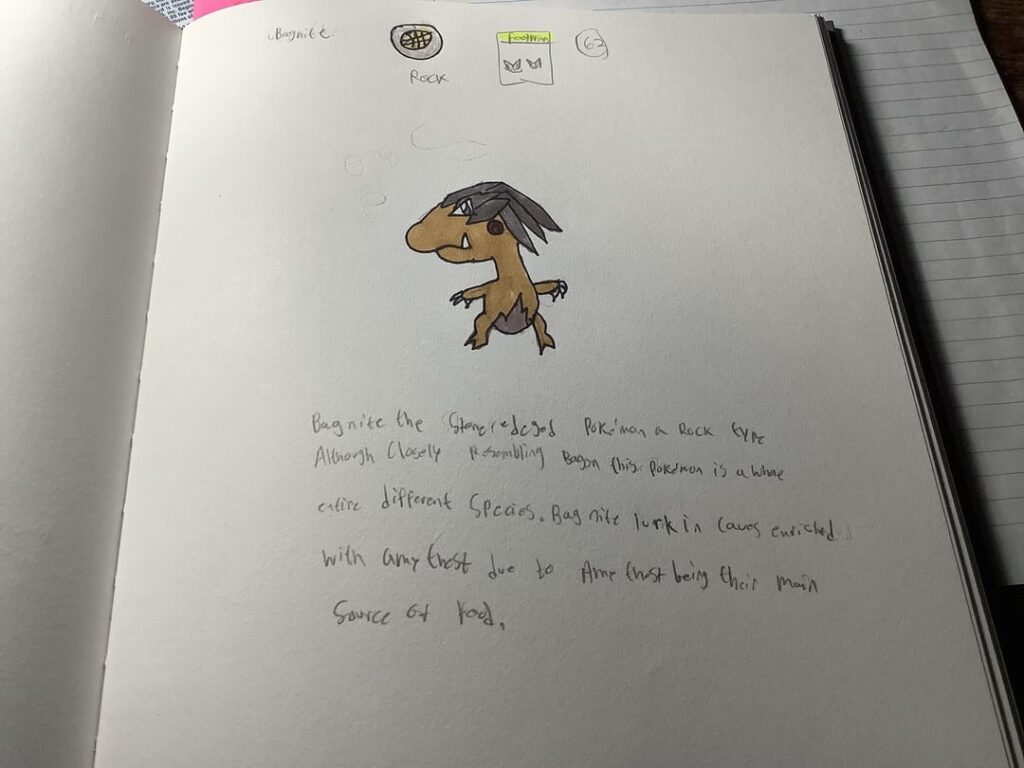 Bagnite.
Rock
Footprint
63
Bagnite the Pokémon a Rock type
Although Closely Resembling Bagon this Pokemon is a whole
entire different Species. Bagnite lurk in Caves enriched
with amythest due to Amythest being their main
Source of Food.